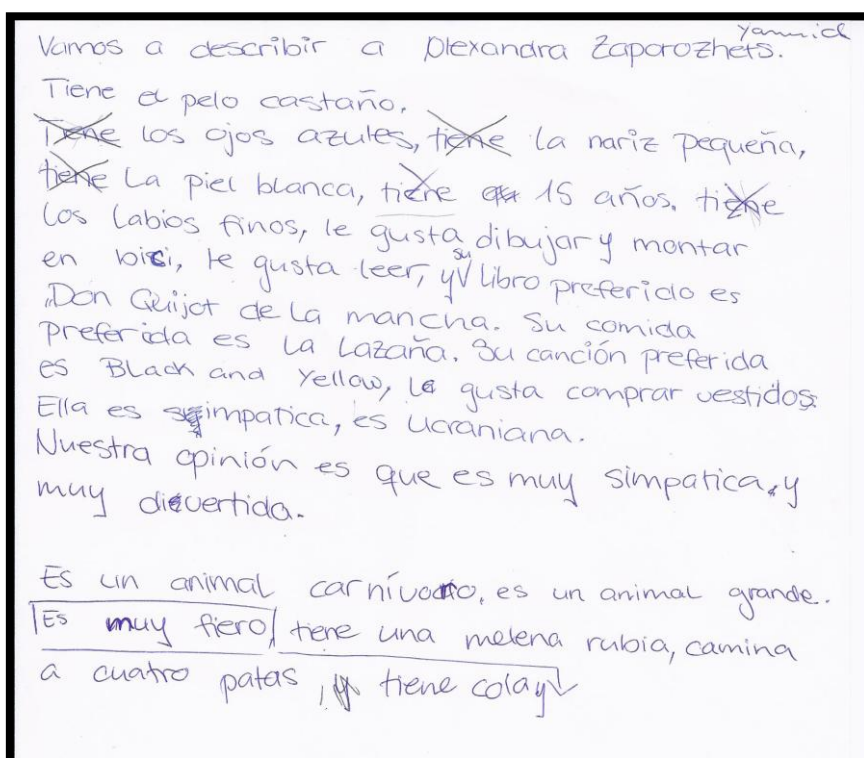 Yannick
Vamos a describir a Olexandra Zaporozhets.
Tiene el pelo castaño.
Tiene los ojos azules, tiene la nariz pequeña,
tiene La piel blanca, tiene 15 años. tiene
los labios finos, le gusta dibujar y montar
en bici, le gusta leer, y su libro preferido es
Don Quijot de La mancha. Su comida
preferida es La Lazaña. Su canción preferida
es Black and Yellow, le gusta comprar vestidos.
Ella es simpatica, es Ucraniana.
Nuestra opinión es que es muy simpatica, y
muy divertida.
Es un animal carnívoro, es un animal grande.
Es muy fiero tiene una melena rubia, camina
a cuatro patas, tiene cola y